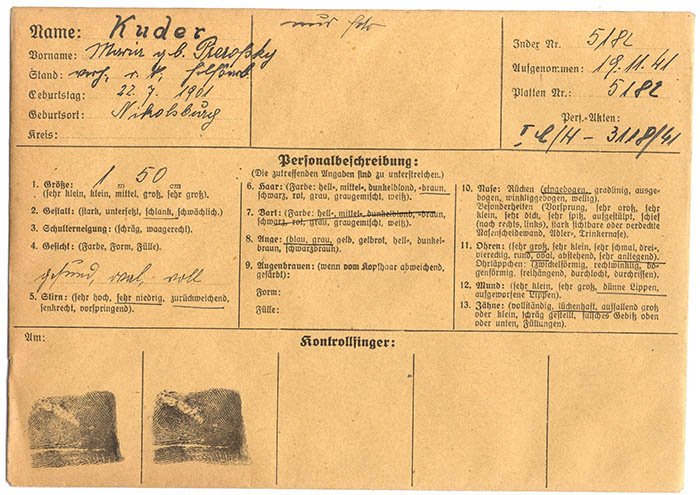 Name: Kuder
Vorname: Maria geb.
Stand: verh.
Geburtstag: 22. 7. 1901
Geburtsort: Nikolsburg
Kreis:
nur foto
Index Nr. 5182
Aufgenommen: 19.11.41
Platten Nr.: 5182
Pers.-Akten:
3118/41
Personalbeschreibung:
(Die zutreffenden Angaben sind zu unterstreichen.)
1. Größe: 1 m 50 cm
(sehr klein, klein, mittel, groß, sehr groß).
2. Gestalt: (stark, untersetzt, schlank, schwächlich).
3. Schulterneigung: (schräg, waagerecht).
4. Gesicht: (Farbe, Form, Fülle).
gesund, oval, voll
5. Stirn: (sehr hoch, sehr niedrig, zurückweichend,
senkrecht, vorspringend).
6. Haar: (Farbe: hell-, mittel-, dunkelblond, -braun,
schwarz, rot, grau, graugemischt, weiß).
7. Bart: (Farbe: hell-, mittel-, dunkelblond, -braun,
schwarz, rot, grau, graugemischt, weiß).
8. Auge: (blau, grau, gelb, gelbrot, hell-, dunkel-
braun, schwarzbraun).
9. Augenbrauen: (wenn vom Kopfhaar abweichend,
gefärbt):
Form:
Fülle:
10. Nase: Rücken (eingebogen, gradlinig, ausge-
bogen, winkliggebogen, wellig).
Besonderheiten (Vorsprung, sehr groß, sehr
klein, sehr dick, sehr spitz, aufgestülpt, schief
(nach rechts, links), stark sichtbare oder verdeckte
Nasenscheidewand, Adler-, Trinkernase).
11. Ohren: (sehr groß, sehr klein, sehr schmal, drei-
viereckig, rund, oval, abstehend, sehr anliegend).
Ohrläppchen: (zwickelförmig, rechtwinklig, bo-
genförmig, freihängend, durchlocht, durchrissen).
12. Mund: (sehr klein, sehr groß, dünne Lippen,
aufgeworfene Lippen).
13. Zähne: (vollständig, lückenhaft, auffallend groß
oder klein, schräg gestellt, falsches Gebiß oben
oder unten, Füllungen).
Am:
Kontrollfinger: